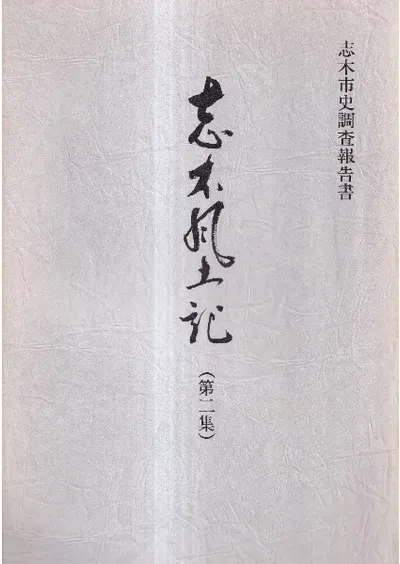 志木市史調査報告書
志木風土記
（第二集）